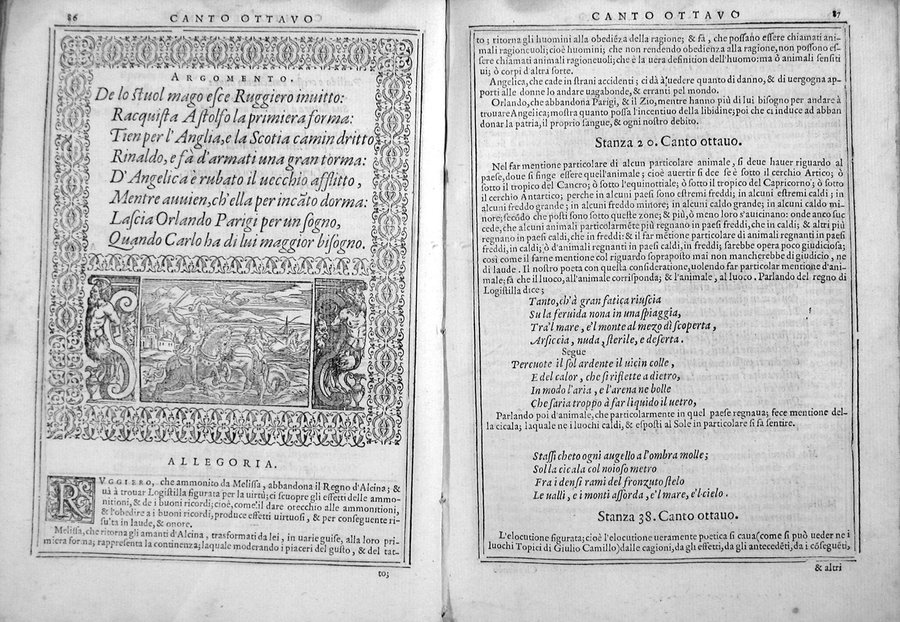 86 CANTO OTTAVO
ARGOMENTO.
De lo stuol mago esce Ruggiero inuitto:
Racquista Astolfo la primiera forma:
Tien per l'Anglia, e la Scotia camin dritto
Rinaldo, e fà d'armati una gran torma:
D'Angelica è rubato il uecchio afflitto,
Mentre auuien, ch'ella per incãto dorma:
Lascia Orlando Parigi per un sogno,
Quando Carlo ha di lui maggior bisogno.
ALLEGORIA.
RVGGIERO, che ammonito da Melissa, abbandona il Regno d'Alcina; &
uà à trouar Logistilla figurata per la uirtù; ci scuopre gli effetti delle ammo-
nitioni, & de i buoni ricordi; cioè, come'il dare orecchio alle ammonitioni,
& l'obedire a i buoni ricordi, produce effetti uirtuosi, & per conseguente ri-
su'ta in laude, & onore.
Melissa, che ritorna gli amanti d'Alcina, trasformati da lei, in uarie guise, alla loro pri-
miera forma; rappresenta la continenza; laquale moderando i piaceri del gusto, & del tat-
to;
CANTO OTTAVO 87
to; ritorna gli huomini alla obediẽza della ragione; & fà, che possano essere chiamati ani-
mali ragioneuoli; cioè huomini; che non rendendo obedienza alla ragione, non possono es-
sere chiamati animali ragioneuoli; che è la uera definition dell'huomo: ma ò animali sensiti
ui; ò corpi d'altra sorte.
Angelica, che cade in strani accidenti; ci dà à uedere quanto di danno, & di uergogna ap-
porti alle donne lo andare uagabonde, & erranti pel mondo.
Orlando, che abbandona Parigi, & il Zio, mentre hanno più di lui bisogno per andare à
trouare Angelica; mostra quanto possa l'incentiuo della libidine; poi che ci induce ad abban
donar la patria, il proprio sangue, & ogni nostro debito.
Stanza 20. Canto ottauo.
Nel far mentione particolare di alcun particolare animale, si deue hauer riguardo al
paese, doue si finge essere quell'animale; cioè auertir si dee se è sotto il cerchio Artico; ò
sotto il tropico del Cancro; ò sotto l'equinottiale; ò sotto il tropico del Capricorno; ò sotto
il cerchio Antartico; perche in alcuni paesi sono estremi freddi; in alcuni estremi caldi; in
alcuni freddo grande; in alcuni freddo minore; in alcuni caldo grande; in alcuni caldo mi-
nore; secõdo che posti sono sotto queste zone; & più, ò meno loro s'auicinano: onde anco suc
cede, che alcuni animali particolarmẽte più regnano in paesi freddi, che in caldi; & altri più
regnano in paesi caldi, che in freddi: & il far mẽtione particolare di animali regnanti in paesi
freddi, in caldi; ò d'animali regnanti in paesi caldi, in freddi; sarebbe opera poco giudiciosa;
così come il farne mentione col riguardo sopraposto mai non mancherebbe di giudicio, ne
di laude. Il nostro poeta con quella consideratione, uolendo far particolar mentione d'ani-
male; fà che il luoco, all'animale corrisponda; & l'animale, al luoco. Parlando del regno di
Logistilla dice;
Tanto, ch'à gran fatica riuscia
Su la feruida nona in una spiaggia,
Tra'l mare, e'l monte al mezo dì scoperta,
Arsiccia, nuda, sterile, e deserta.
Segue
Percuote il sol ardente il uicin colle,
E del calor, che si riflette a dietro,
In modo l'aria, e l'arena ne bolle
Che saria troppo à far liquido il uetro,
Parlando poi d'animale, che particolarmente in quel paese regnaua; fece mentione del-
la cicala; laquale ne i luochi caldi, & esposti al Sole in particolare si fa sentire.
Stassi cheto ogni augello a l'ombra molle;
Sol la cicala col noioso metro
Fra i densi rami del fronzuto stelo
Le ualli, e i monti assorda, e'l mare, e'l cielo.
Stanza 38. Canto ottauo.
L'elocutione figurata; cioè l'elocutione ueramente poetica si caua (come si può ueder ne i
luochi Topici di Giulio Camillo) dalle cagioni, da gli effetti, da gli antecedẽti, da i cõseguẽti,
& altri